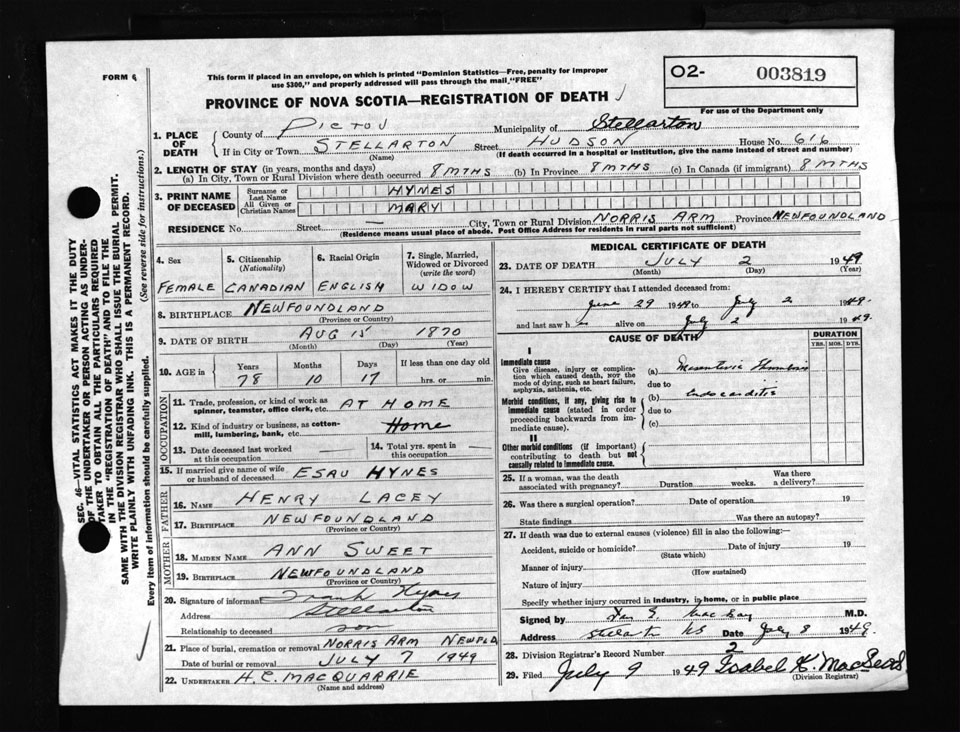 FORM 4
This form if placed in an envelope, on which is printed "Dominion Statistics—Free, penalty for improper
use $300," and properly addressed will pass through the mail, "FREE"
PROVINCE OF NOVA SCOTIA—REGISTRATION OF DEATH
O2- 003819
For use of the Department only
SEC. 46—VITAL STATISTICS ACT MAKES IT THE DUTY
OF THE UNDERTAKER OR PERSON ACTING AS UNDER-
TAKER TO OBTAIN ALL THE PARTICULARS REQUIRED
IN THE "REGISTRATION OF DEATH" AND TO FILE THE
SAME WITH THE DIVISION REGISTRAR WHO SHALL ISSUE THE BURIAL PERMIT.
WRITE PLAINLY WITH UNFADING INK. THIS IS A PERMANENT RECORD.
Every item of information should be carefully supplied. (See reverse side for instructions.)
1. PLACE OF DEATH
County of PICTOU Municipality of Stellarton
If in City or Town STELLARTON Street HUDSON House No. 616
(Name) (If death occurred in a hospital or institution, give the name instead of street and number)
2. LENGTH OF STAY (in years, months and days)
(a) In City, Town or Rural Division where death occurred 8 MTHS (b) In Province 8 MTHS (c) In Canada (if immigrant) 8 MTHS
3. PRINT NAME OF DECEASED
Surname or Last Name HYNES
All Given or Christian Names MARY
RESIDENCE No. Street — City, Town or Rural Division NORRIS ARM Province NEWFOUNDLAND
(Residence means usual place of abode. Post Office Address for residents in rural parts not sufficient)
4. Sex FEMALE
5. Citizenship (Nationality) CANADIAN
6. Racial Origin ENGLISH
7. Single, Married, Widowed or Divorced (write the word) WIDOW
8. BIRTHPLACE NEWFOUNDLAND
(Province or Country)
9. DATE OF BIRTH AUG 15 1870
(Month) (Day) (Year)
10. AGE in Years 78 Months 10 Days 17 If less than one day old hrs. or min.
OCCUPATION
11. Trade, profession, or kind of work as spinner, teamster, office clerk, etc. AT HOME
12. Kind of industry or business, as cotton-mill, lumbering, bank, etc. Home
13. Date deceased last worked at this occupation —
14. Total yrs. spent in this occupation —
15. If married give name of wife or husband of deceased ESAU HYNES
FATHER
16. Name HENRY LACEY
17. Birthplace NEWFOUNDLAND
(Province or Country)
MOTHER
18. Maiden Name ANN SWEET
19. Birthplace NEWFOUNDLAND
(Province or Country)
20. Signature of informant Frank Hynes
Address Stellarton
Relationship to deceased son
21. Place of burial, cremation or removal NORRIS ARM NEWFLD
Date of burial or removal JULY 7 1949
22. UNDERTAKER H. C. MACQUARRIE
(Name and address)
MEDICAL CERTIFICATE OF DEATH
23. DATE OF DEATH JULY 2 1949
(Month) (Day) (Year)
24. I HEREBY CERTIFY that I attended deceased from:
June 29 1949 to July 2 1949.
and last saw h alive on July 2 1949.
CAUSE OF DEATH DURATION
YRS. MOS. DYS.
I
Immediate cause
Give disease, injury or complication which caused death, NOT the mode of dying, such as heart failure, asphyxia, asthenia, etc.
(a) Mesenteric Thrombosis
due to
Morbid conditions, if any, giving rise to immediate cause (stated in order proceeding backwards from immediate cause).
(b) Endocarditis
due to
(c)
II
Other morbid conditions (if important) contributing to death but not causally related to immediate cause.
25. If a woman, was the death associated with pregnancy? Duration weeks. Was there a delivery?
26. Was there a surgical operation? Date of operation 19
State findings Was there an autopsy?
27. If death was due to external causes (violence) fill in also the following:—
Accident, suicide or homicide? Date of injury 19
(State which)
Manner of injury
(How sustained)
Nature of injury
Specify whether injury occurred in industry, in home, or in public place
Signed by M.D.
Address Stellarton NS Date July 8 1949.
28. Division Registrar's Record Number 2
29. Filed July 9 1949 Isabel K.
(Division Registrar)